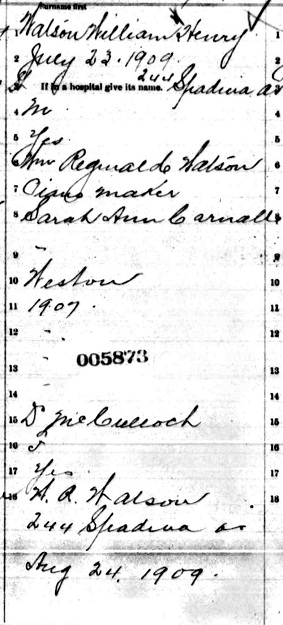 Surname first
1 Watson William Henry 1
2 July 23. 1909. 2
3 If in a hospital give its name. 244 Spadina av 3
4 M 4
5 Yes 5
6 Wm Reginald Watson 6
7 Piano maker 7
8 Sarah Ann Carnall 8
9 " 9
10 Weston 10
11 1907. 11
12 12
005873
13 13
14 14
15 Dr McCulloch 15
16 16
17 Yes 17
18 W. R. Watson 18
244 Spadina av
Aug 24, 1909.